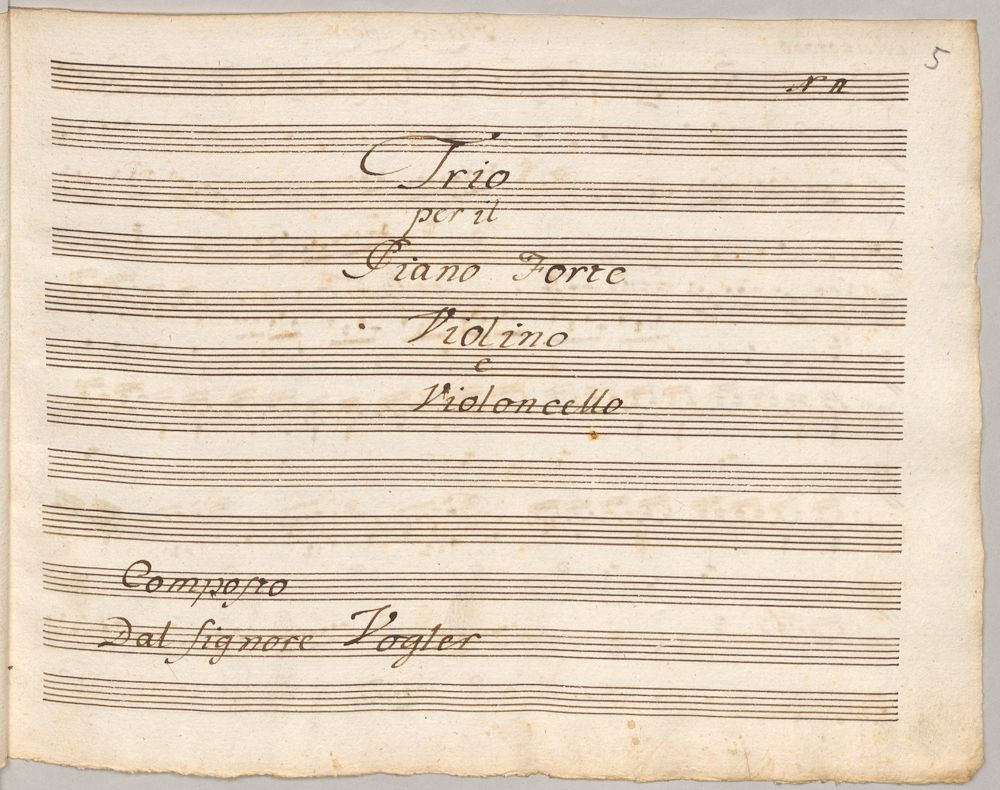 5
Trio
per il
Piano Forte
Violino
e
Violoncello
Compoſto
Dal ſignore Vogler